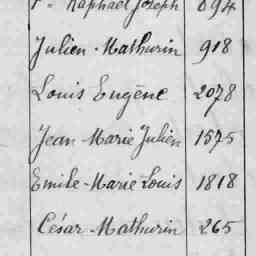 Raphaël Joseph 694
Julien-Mathurin 918
Louis Eugène 2078
Jean-Marie Julien 1575
Emile-Marie-Louis 1818
César-Mathurin 265